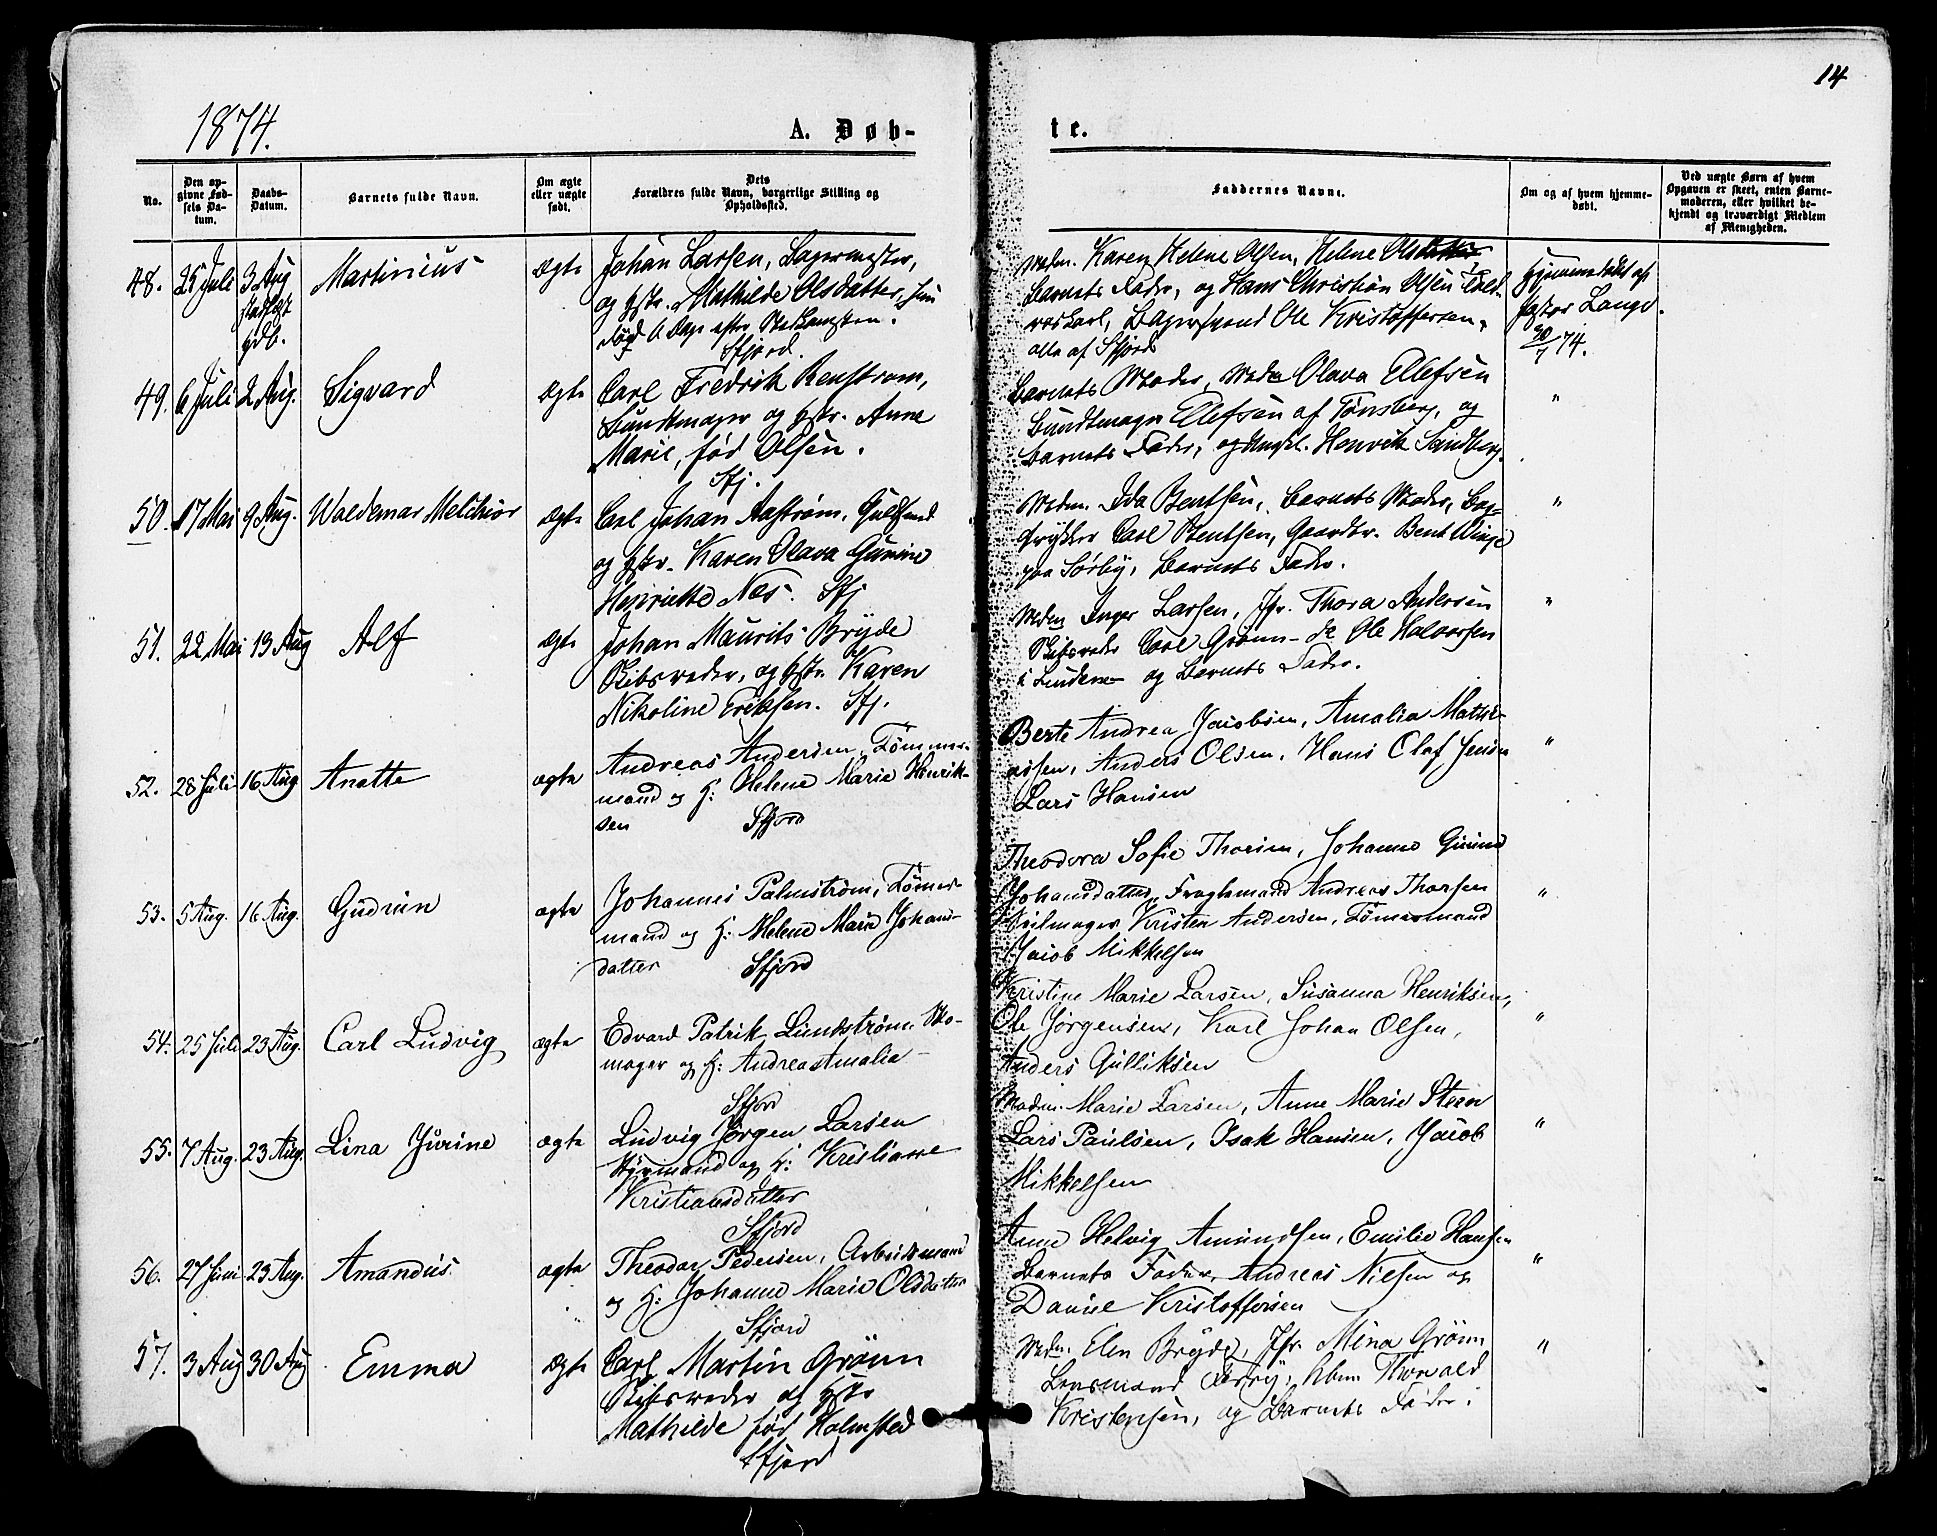 14
1874.
A. Døb-
te.
No.
Den op-
givne Fød-
sels Da-
tum.
Daabs-
Datum.
Barnets fulde Navn.
Om ægte
eller uægte
født.
Dets
Forældres fulde Navn, borgerlige Stilling og
Opholdssted.
Faddernes Navne.
Om og af hvem hjemme-
døbt.
Ved uægte Børn af hvem
Opgaven er skeet, enten Barne-
moderen, eller hvilket be-
kjendt og troværdigt Medlem
af Menigheden.
48. 25 Juli 3 Aug Martinius ægte
Johan Larsen, Bagermester,
og Hstr. Mathilde Olsdatter,
Sfjord.
Madm. Karen Helene Olsen, Helene
Barnets Fader, og Hans Christian Olsen
Bagersvend Ole Kristoffersen,
alle af Sfjord
Hjemmedøbt af
Pastor Lange
30/7 74.
49. 6 Juli 2 Aug. Sigvard ægte
Carl Fredrik Renstrøm,
Buntmager og Hstr. Anne
Marie, født Olsen.
Sfj.
Barnets Moder, Madm Olava Ellefsen
Bundtmager Ellefsen af Tønsberg, og
Barnets Fader, og Ungk. Henrik Sandberg.
"
50. 17 Mai 9 Aug. Waldemar Melchior ægte
Carl Johan Aastrøm, Guldsmed
og Hstr. Karen Olava Gurine
Henriette Næs. Sfj
Madm. Ida Bentsen, Barnets Moder, Bog-
trykker Carl Bentsen, Gaardbr. Bent Winge
paa Sørby, Barnets Fader.
"
51. 22 Mai 13 Aug Alf ægte
Johan Maurits Bryde
Skibsreder, og Hstr. Karen
Nikoline Eriksen. Sfj.
Madm Inger Larsen, Jfr. Thora Andersen
Skibsreder Carl Grønn - do Ole Halvorsen
i Linden - og Barnets Fader.
"
52. 28 Juli 16 Aug Anette ægte
Andreas Andersen, Tømmer-
mand og H: Helene Marie Henrik-
sen Sfjord
Berte Andrea Jacobsen, Amalia Mathi-
assen, Anders Olsen, Hans Olaf Jensen
Lars Hansen
"
53. 5 Aug. 16 Aug. Gudrun ægte
Johannes Palmstrøm, Tømer-
mand og H: Helene Marie Johans-
datter Sfjord
Theodora Sofie Thorsen, Johanne Gurine
Johansdatter, Fragtemand Andreas Thorsen
Seilmager Kristen Andersen, Tømermand
Jacob Mikkelsen
"
54. 25 Juli 23 Aug. Carl Ludvig ægte
Edvard Patrik Lundstrøm, Sko-
mager og H: Andrea Amalia -
Sfjord
Kristine Marie Larsen, Susanna Henriksen,
Ole Jørgensen, Karl Johan Olsen,
Anders Gulliksen
"
55. 7 Aug. 23 Aug. Lina Jurine ægte
Ludvig Jørgen Larsen
Styrmand og H: Kristiane
Kristiansdatter
Sfjord
Madm. Marie Larsen, Anne Marie Steen
Lars Paulsen, Isak Hansen, Jacob
Mikkelsen
"
56. 27 Juni 23 Aug. Amandus ægte
Theodor Pedersen, Arbeidsmand
og H: Johanne Marie Olsdatter
Sfjord
Anne Helvig Amundsen, Emilie Hansen
Barnets Fader, Andreas Nilsen og
Daniel Kristoffersen
"
57. 3 Aug 30 Aug Emma ægte
Carl Martin Grønn
Skibsreder og Hstr
Mathilde født Holmsted
Sfjord
Madm. Elen Bryde, Jfr. Mina Grønn
Lensmand Thorvald
Kristensen, og Barnets Fader.
"